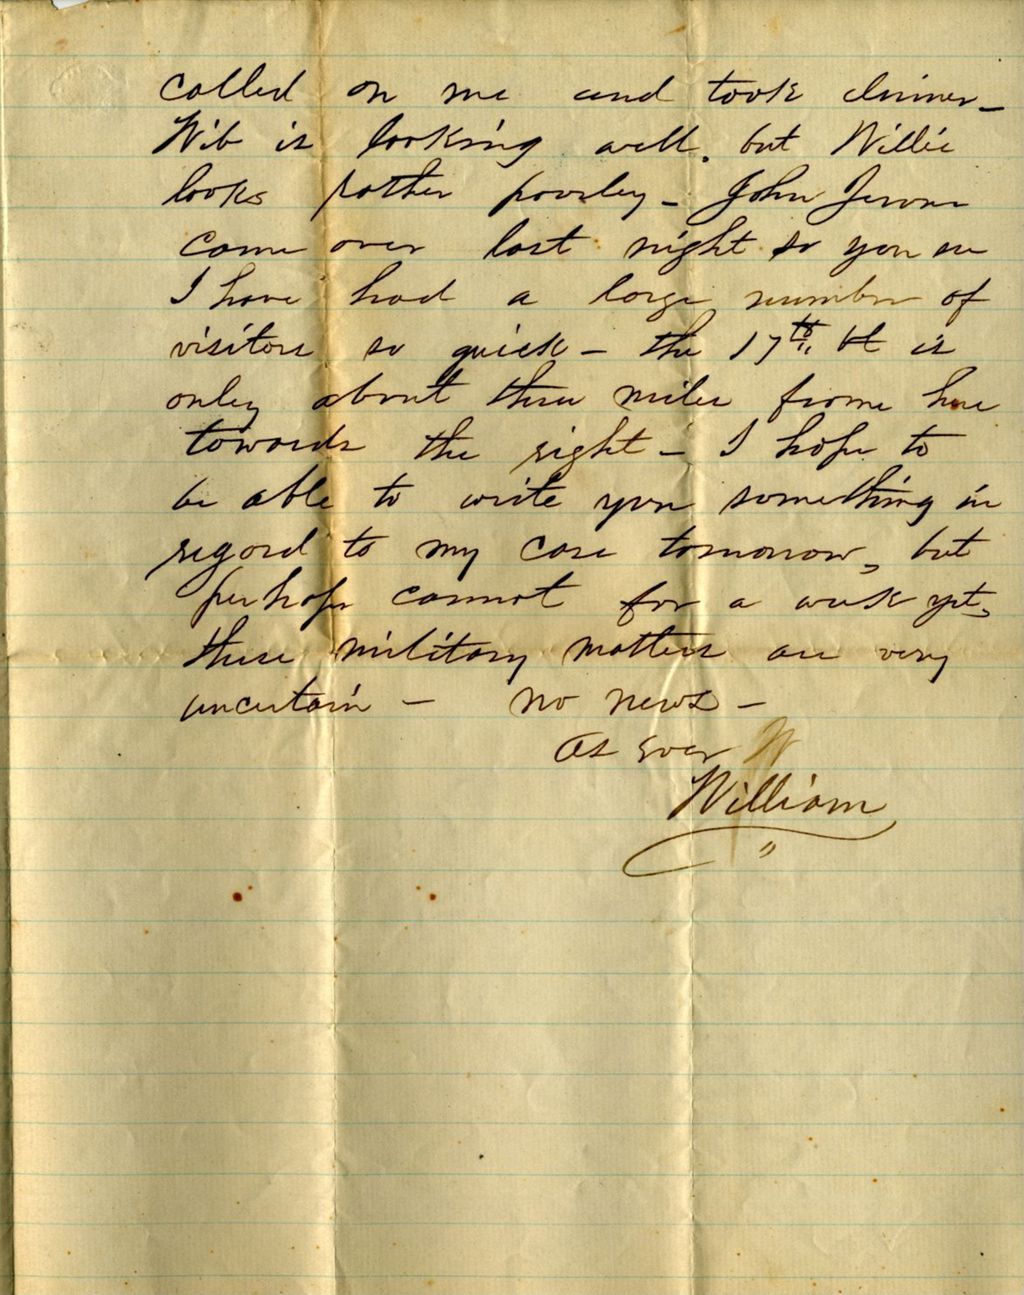 called on me and took dinner —
Wib is looking well. but Willie
looks rather poorley — John Jerome
came over last night so you see
I have had a large number of
visitors so quick — the 17th Vt is
only about three miles frome here
towards the right — I hope to
be able to write you something in
regard to my case tomorrow, but
perhaps cannot for a week yet,
these military matters are very
uncertain — no news —
As ever W
William